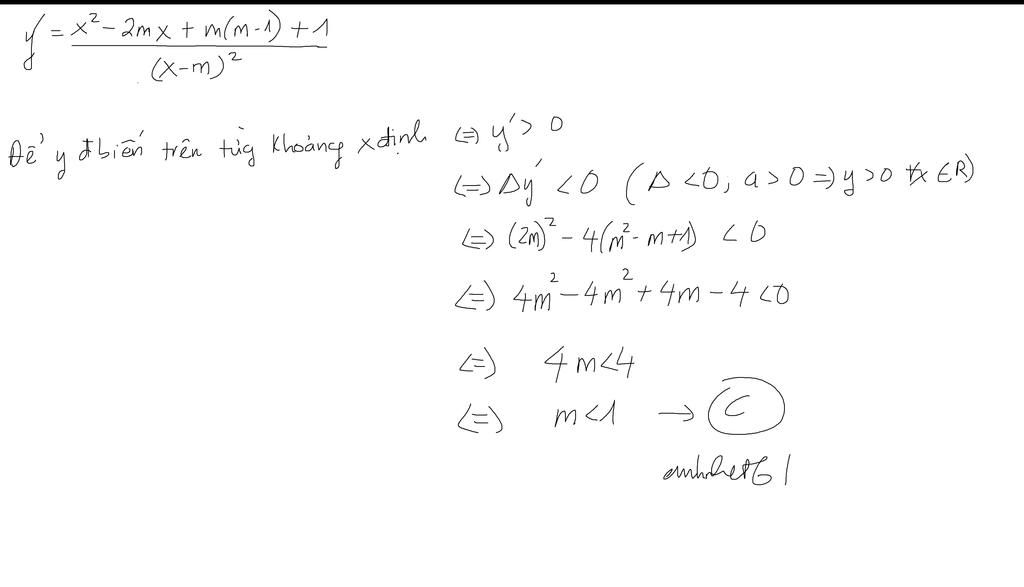 y = x² - 2mx + m(m-1) + 1
(x-m)²
Để y đbiến trên từg khoảng xđịnh <=> y' > 0
<=> Δy' < 0 ( Δ < 0, a > 0 => y > 0 ∀x ∈ R)
<=> (2m)² - 4(m² - m+1) < 0
<=> 4m² - 4m² + 4m - 4 < 0
<=> 4m < 4
<=> m < 1 → C